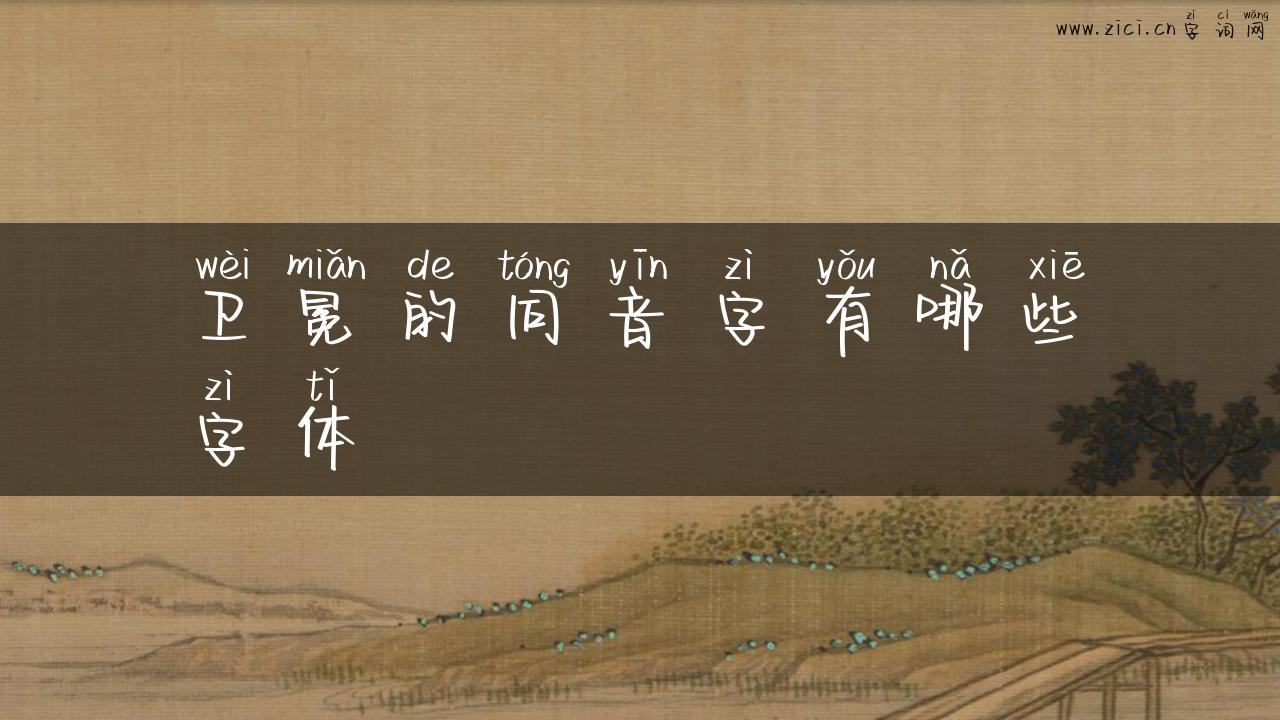 zì cí wǎng
www.zici.cn字词网
wèi miǎn de tóng yīn zì yǒu nǎ xiē
卫冕的同音字有哪些
zì tǐ
字体